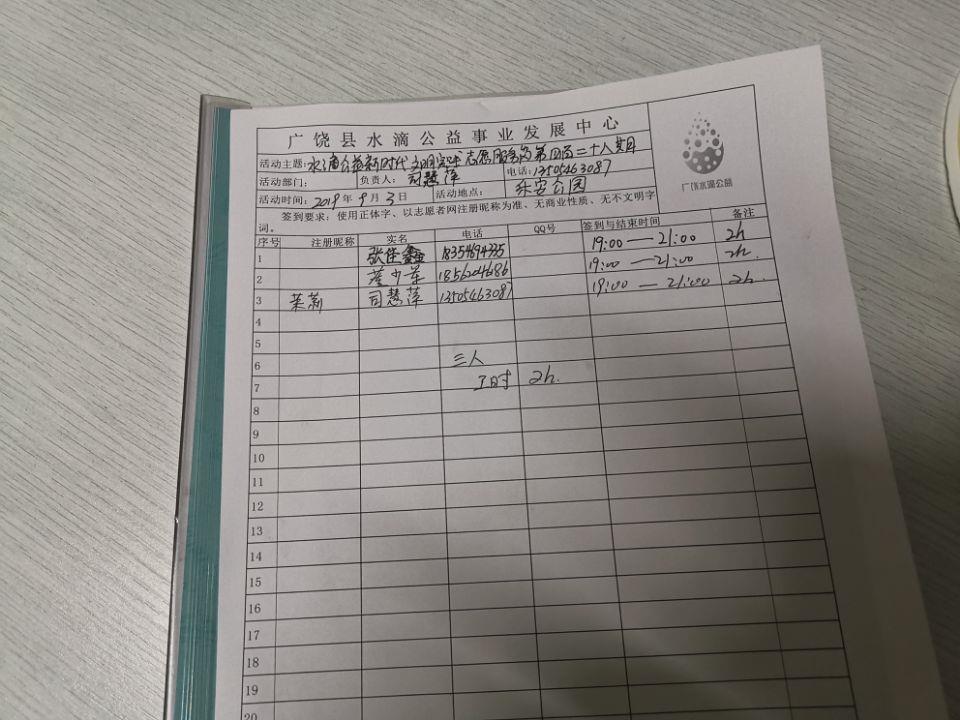 广饶县水滴公益事业发展中心
活动主题: 水滴公益新时代文明实践志愿服务
活动部门: 负责人: 司慧萍 电话: 13505463087
活动时间: 2019年9月3日 活动地点: 乐安公园
签到要求：使用正体字、以志愿者网注册昵称为准、无商业性质、无不文明字
词。
广饶水滴公益
序号 注册昵称 实名 电话 QQ号 签到与结束时间 备注
1 张佳鑫 18354694335 19:00—21:00 2h
2 少军 1856204686 19:00—21:00 2h.
3 茉莉 司慧萍 13505463087 19:00—21:00 2h.
4
5
6 三人
7 2h.
8
9
10
11
12
13
14
15
16
17
18
19
20